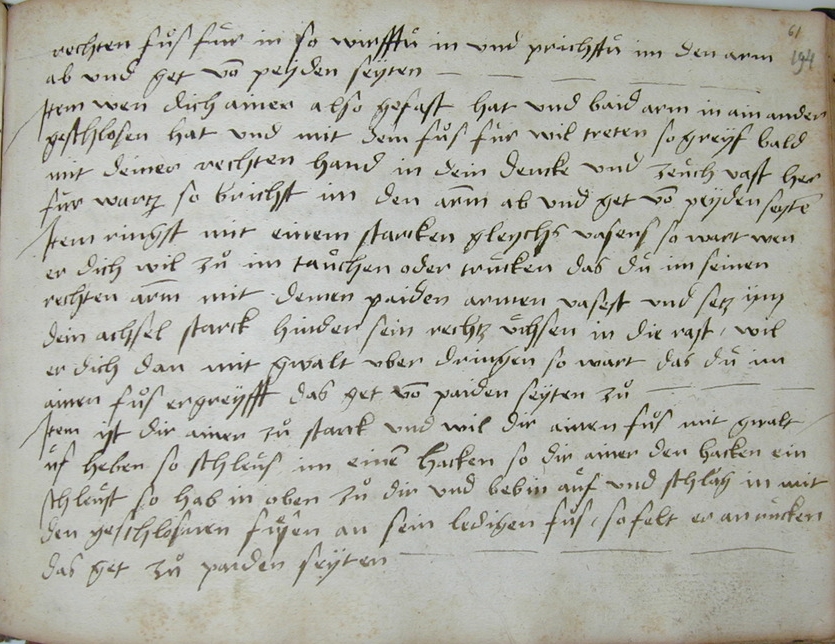 61
194
rechten fůs für in so wirfftu in und prichstu im den arm
ab und get võ peyden seyten
Item wen dich ainer also gefast hat und baid arm in ain ander
geschlosen hat und mit dem fůs für wil treten so greyf bald
mit deiner rechten hand in dein dencke und zeuch vast her
für wartz so brichst im den arm ab und get võ peyden seytẽ
Item ringst mit einem starcken gleychs vasens so wart wen
er dich wil zů im tauchen oder trucken das du im seinen
rechten arm mit deinen paiden armen vasest und setz im
dein achsel starck hinder sein rechtz üchsen in die rast wil
er dich dan mit gwalt uber dringen so wart das du im
ainen fůs ergreyfft das get võ paiden seyten zů
Item ist dir ainer zů starck und wil dir ainen fůs mit gwalt
uf heben so schleus im einẽ hacken so dir ainer den hacken ein
schleust so hab in oben zů dir und heb in auf und schlag in mit
den geschlosnen füsen an sein ledigen fůs so felt er an rucken
das get zů paiden seyten